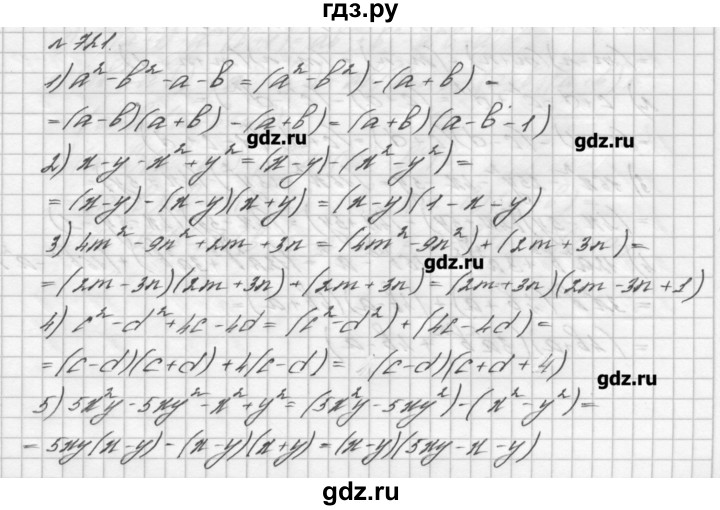 гдз.ру
№ 721.
1) a² - b² - a - b = (a² - b²) - (a + b) =
= (a - b)(a + b) - (a + b) = (a + b)(a - b - 1)
gdz.ru
gdz.ru
2) x - y - x² + y² = (x - y) - (x² - y²) =
= (x - y) - (x - y)(x + y) = (x - y)(1 - x - y)
3) 4m² - 9n² + 2m + 3n = (4m² - 9n²) + (2m + 3n) =
gdz.ru
= (2m - 3n)(2m + 3n) + (2m + 3n) = (2m + 3n)(2m - 3n + 1)
4) c² - d² + 4c - 4d = (c² - d²) + (4c - 4d) =
= (c - d)(c + d) + 4(c - d) = (c - d)(c + d + 4)
gdz.ru
5) 5x²y - 5xy² - x² + y² = (5x²y - 5xy²) - (x² - y²) =
= 5xy(x - y) - (x - y)(x + y) = (x - y)(5xy - x - y)
gdz.ru